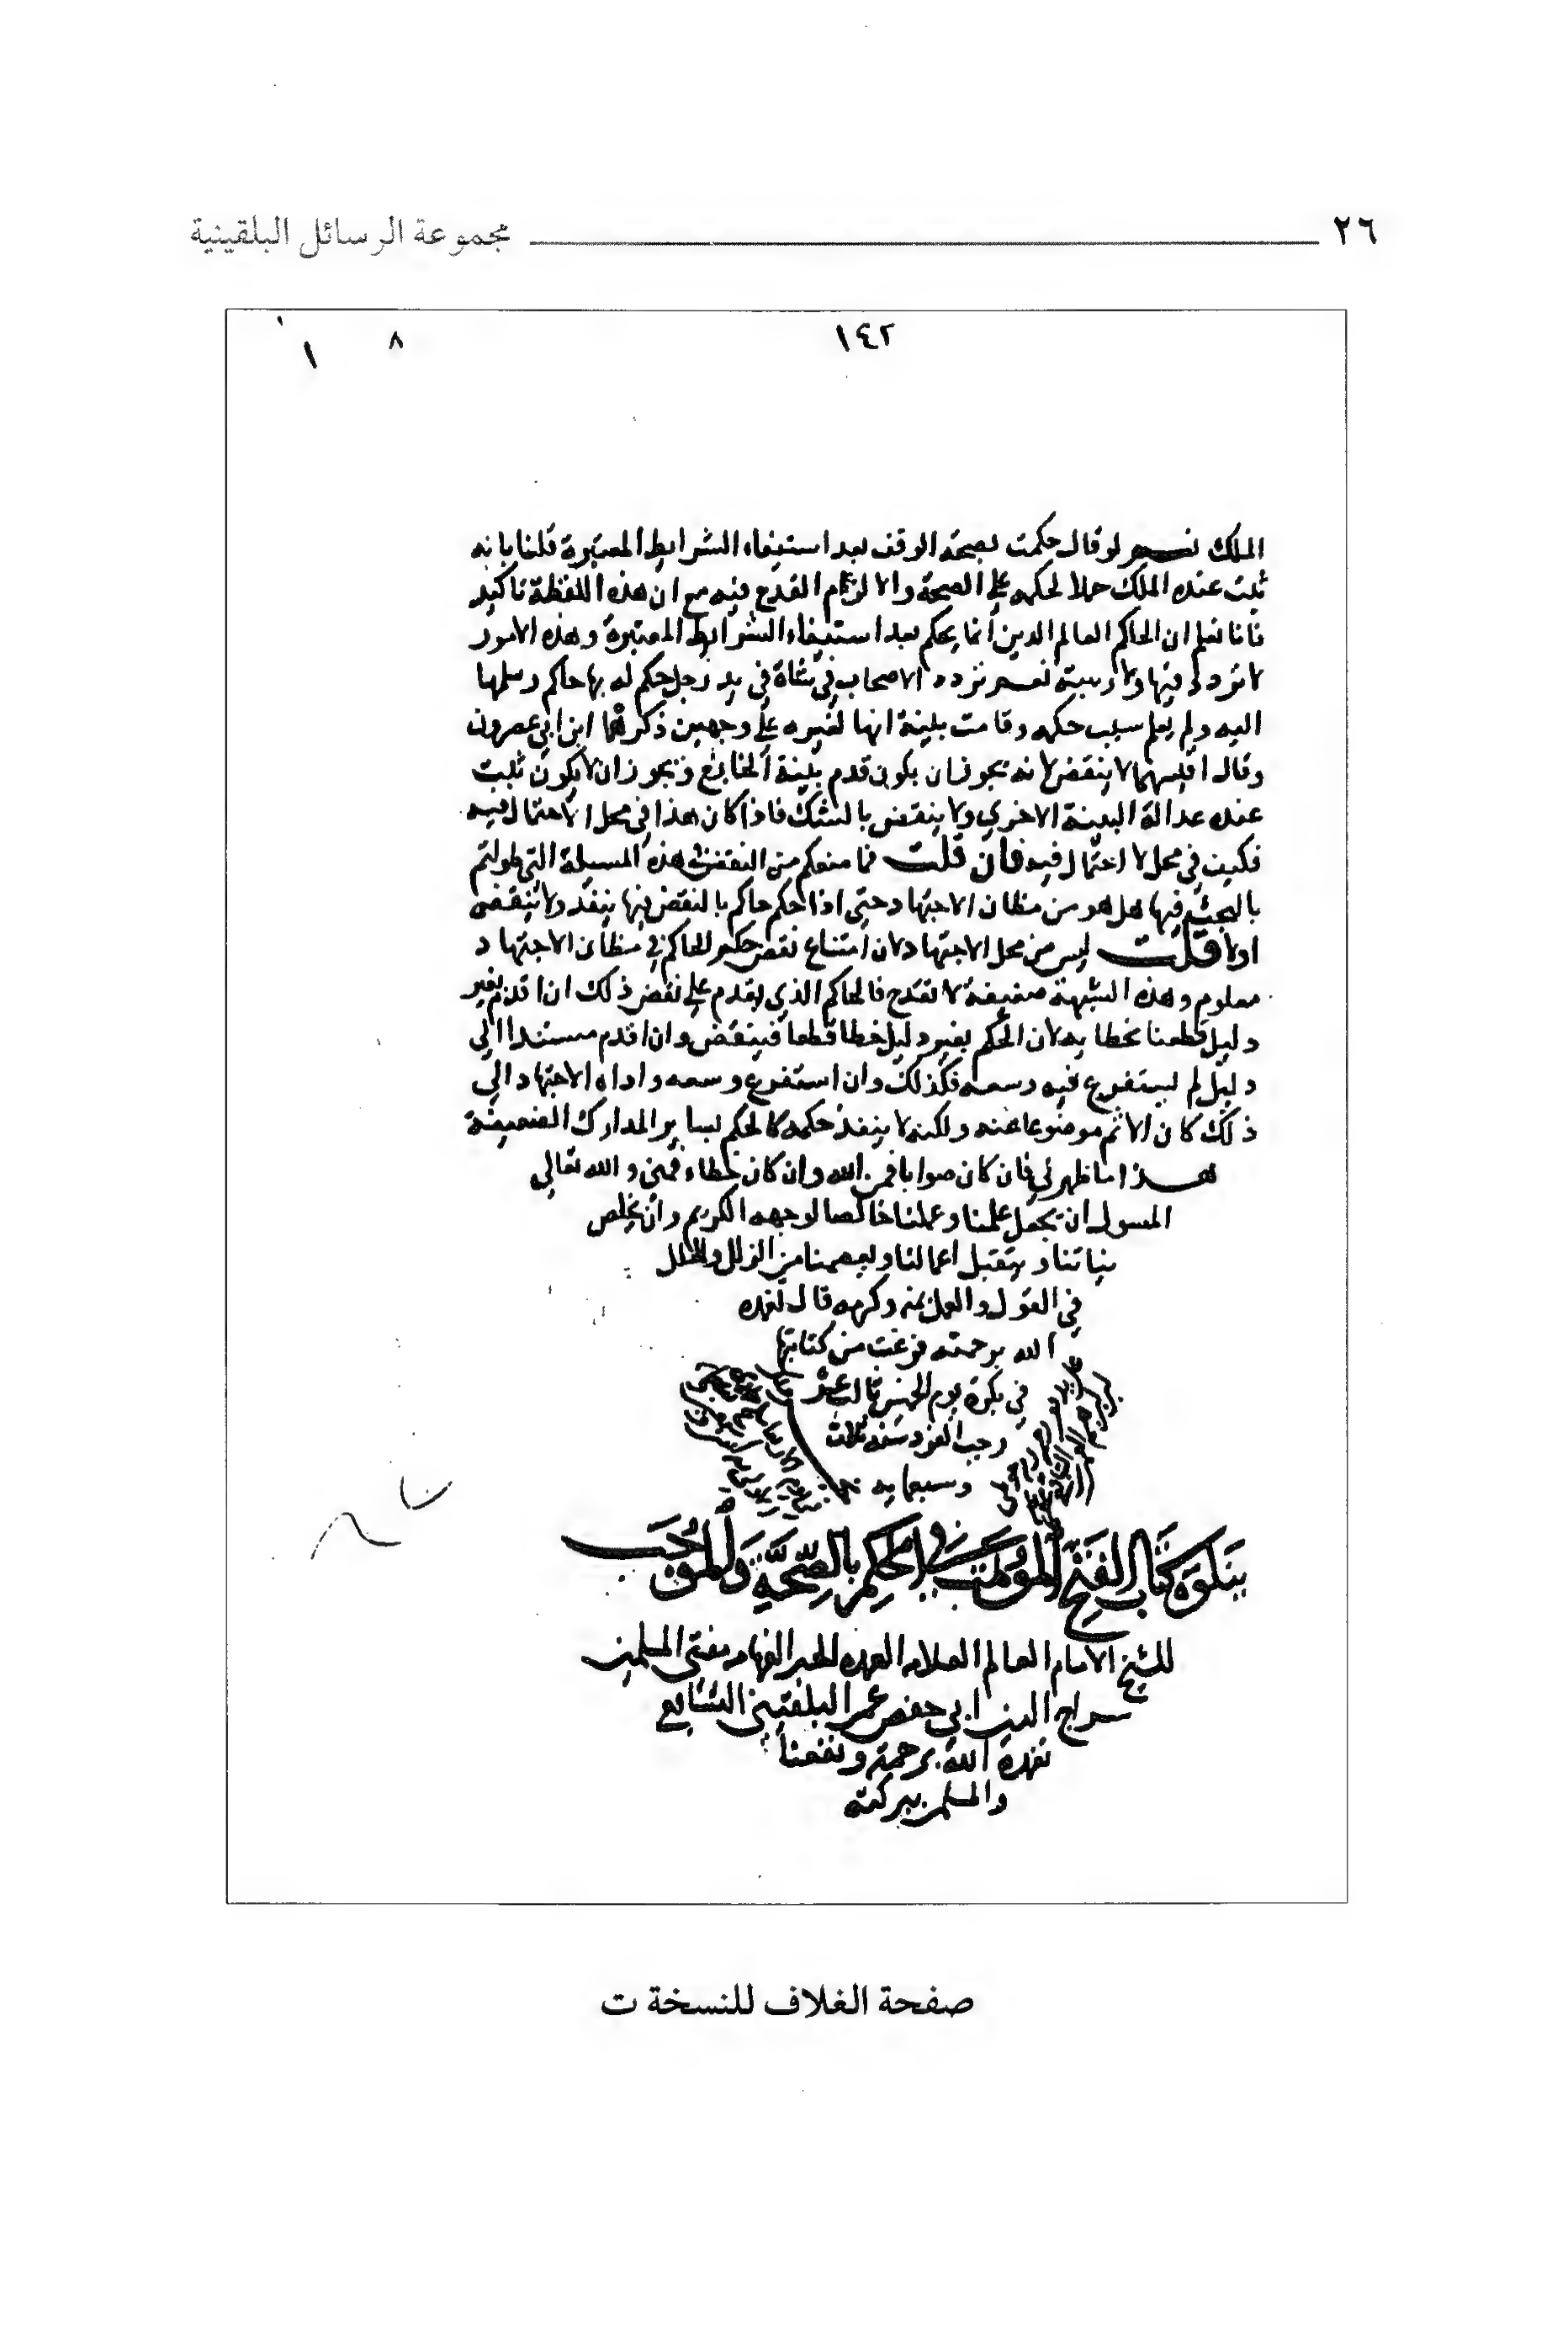 ٢٦ مجموعة الرسائل البلقينية
١٤٢ ٨ ١
الملك نعم لو قال حكمت بصحة الوقف بعد استيفاء الشرايط المعتبرة قلنا بانه
ثبت عنده الملك حملا لحكمه على الصحة والا لزم القدح فيه مع ان هذه اللفظة تاكيد
فانا نعلم ان الحاكم العالم الدين انما يحكم بعد استيفاء الشرايط المعتبرة وهذه الامور
لا تردد فيها ولا ريبة نعم تردد الاصحاب في شاة في يد رجل حكم له بها حاكم وسلمها
اليه ولم يعلم سبب حكمه وقامت بينة انها لغيره على وجهين ذكرهما ابن ابي عصرون
وقال اقيسهما لا ينقض لانه يجوز ان يكون قدم بينة الخارج ويجوز ان لا يكون ثبت
عنده عدالة البينة الاخري ولا ينقض بالشك فاذا كان هذا في محل الاحتمال فيه
فكيف في محل لا احتمال فيه فان قلت فما منعكم من النقض في هذه المسيلة التي طولتم
بالبحث فيها هل هو من مظان الاجتهاد حتى اذا حكم حاكم بالنقض فيها ينفذ ولا ينقض
اولا قلت ليس من محل الاجتهاد لان امتناع نقض حكم الحاكم في مظان الاجتهاد
معلوم وهذه الشبهة ضعيفة لا تقدح فالحاكم الذي يقدم على نقض ذلك ان اقدم بغير
دليل قطعنا بخطا به لان الحكم بغير دليل خطا قطعا فينقض وان اقدم مستندا الي
دليل لم يستفرغ فيه وسعه فكذلك وان استفرغ وسعه واداه الاجتهاد الي
ذلك كان الاثم موضوعا عنه ولكنه لا ينفذ حكمه كالحكم بساير المدارك الضعيفة
هذا ما ظهر لي فان كان صوابا فمن الله وان كان خطاء فمني والله تعالي
المسول ان يجعل علمنا وعملنا خالصا لوجهه الكريم وان يخلص
نياتنا ويتقبل اعمالنا ويعصمنا من الزلل والخلل
في القول والعمل بمنه وكرمه قال تغمده
الله برحمته فرغت من كتابتها
في بكرة يوم الخميس ثالث عشر
رجب الفرد سنة ثلاث
وسبعماية
يتلوه كتاب الفتح الموهب في الحكم بالصحة والموجب
للشيخ الامام العالم العلامه العمده الحبر الفهامه مفتي المسلمين
سراج الدين ابي حفص عمر البلقيني الشافعي
تغمده الله برحمته ونفعنا
والمسلمين ببركته
صفحة الغلاف للنسخة ت